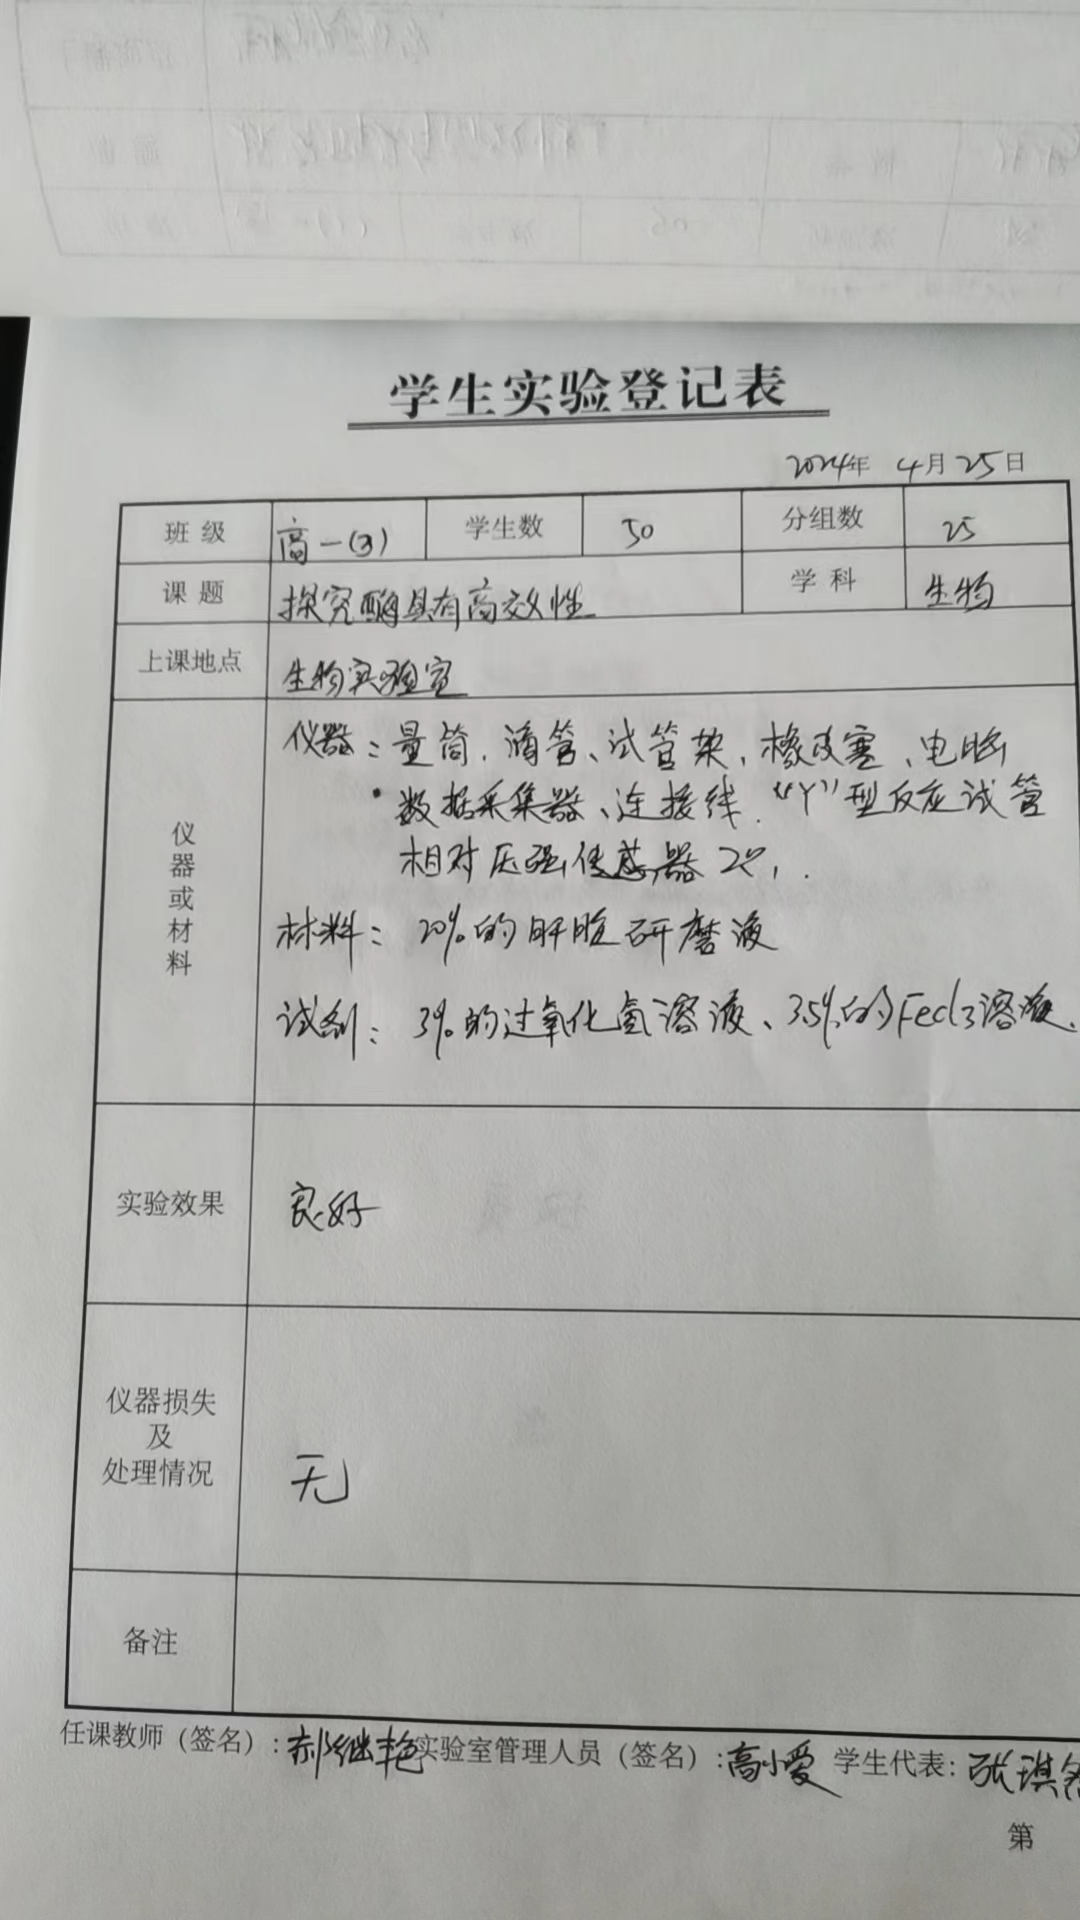 学生实验登记表
2024年 4月25日
班级 高一(3) 学生数 50 分组数 25
课题 探究酶具有高效性 学科 生物
上课地点 生物实验室
仪器或材料
仪器：量筒、滴管、试管架、橡皮塞、电脑
数据采集器、连接线、“Y”型反应试管
相对压强传感器2个、
材料：20%的肝脏研磨液
试剂：3%的过氧化氢溶液、3.5%的FeCl3溶液、
实验效果 良好
仪器损失
及
处理情况 无
备注
任课教师（签名）：郝继艳 实验室管理人员（签名）：高小爱 学生代表：张琪
第